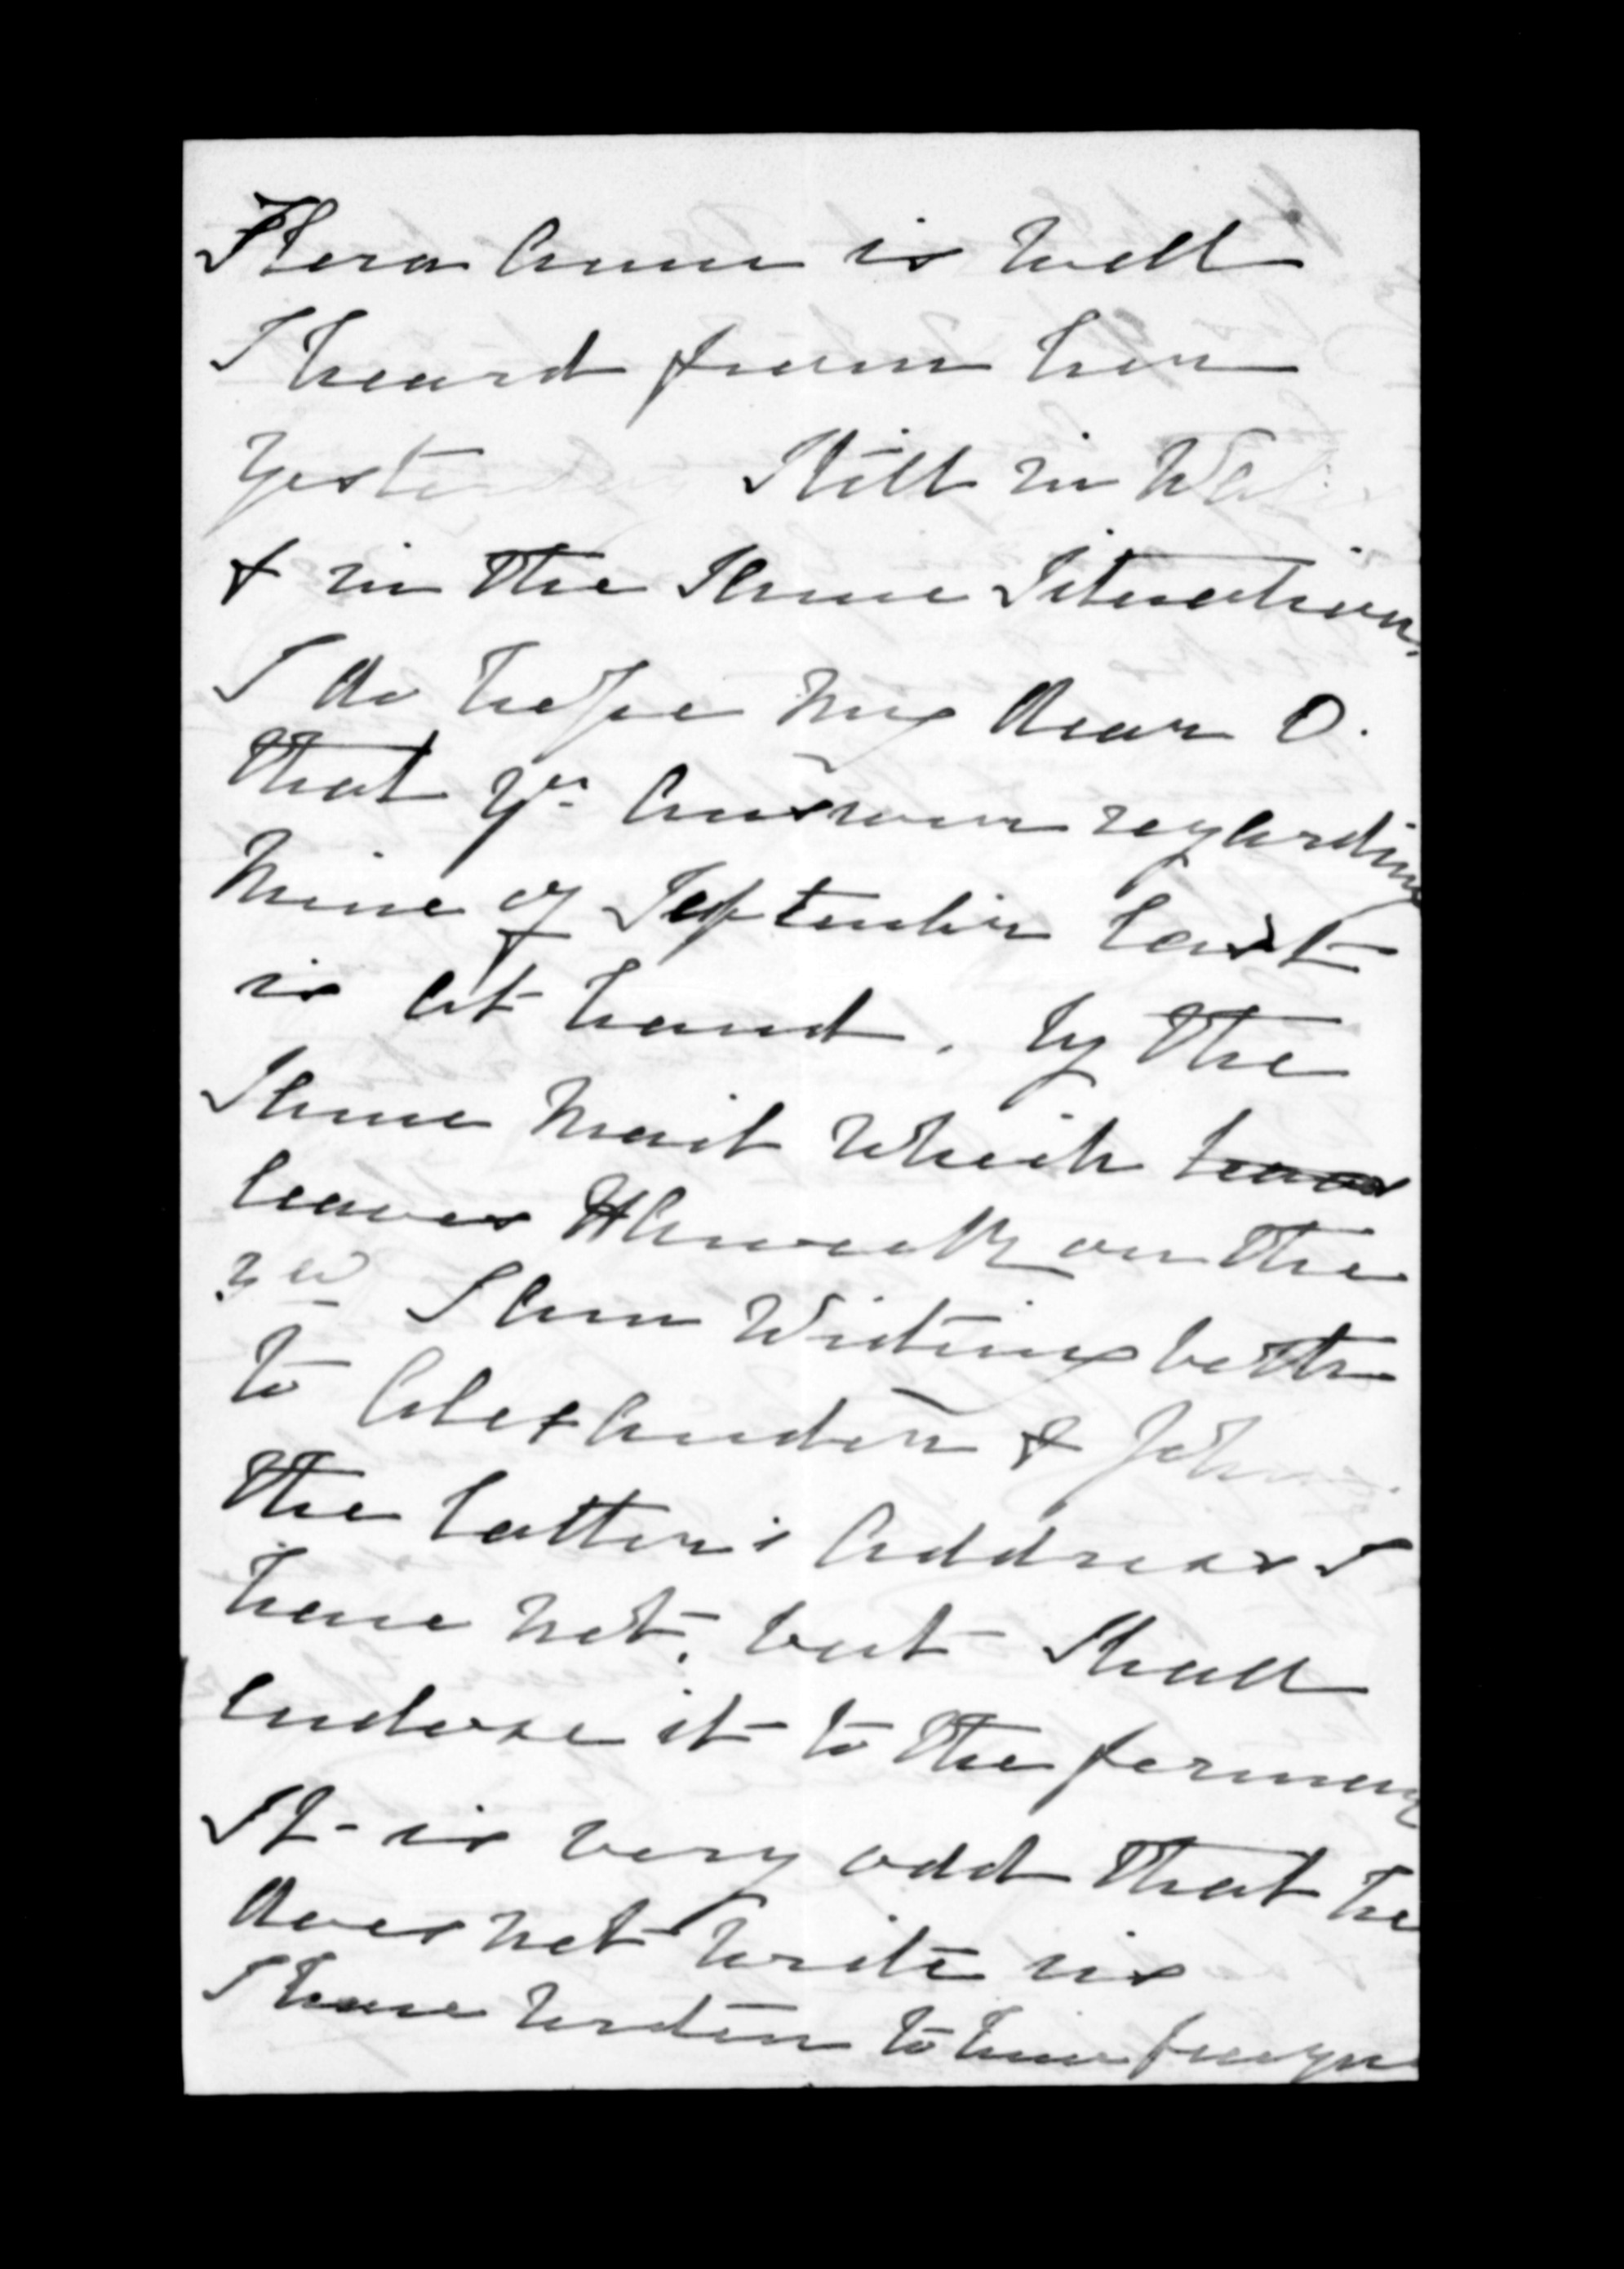 Flora Anne is well
I heard from her
yesterday Still in Wales
& in the Same Situation,
I do hope my dear O.
that yr. answer regarding
mine of September last
is at hand. by the
Same mail which
leaves on the
3rd I am writing both
to Alexander & John.
the latter's address I
have not, but shall
enclose it to the former
It is very odd that he
does not write us
I have written to him